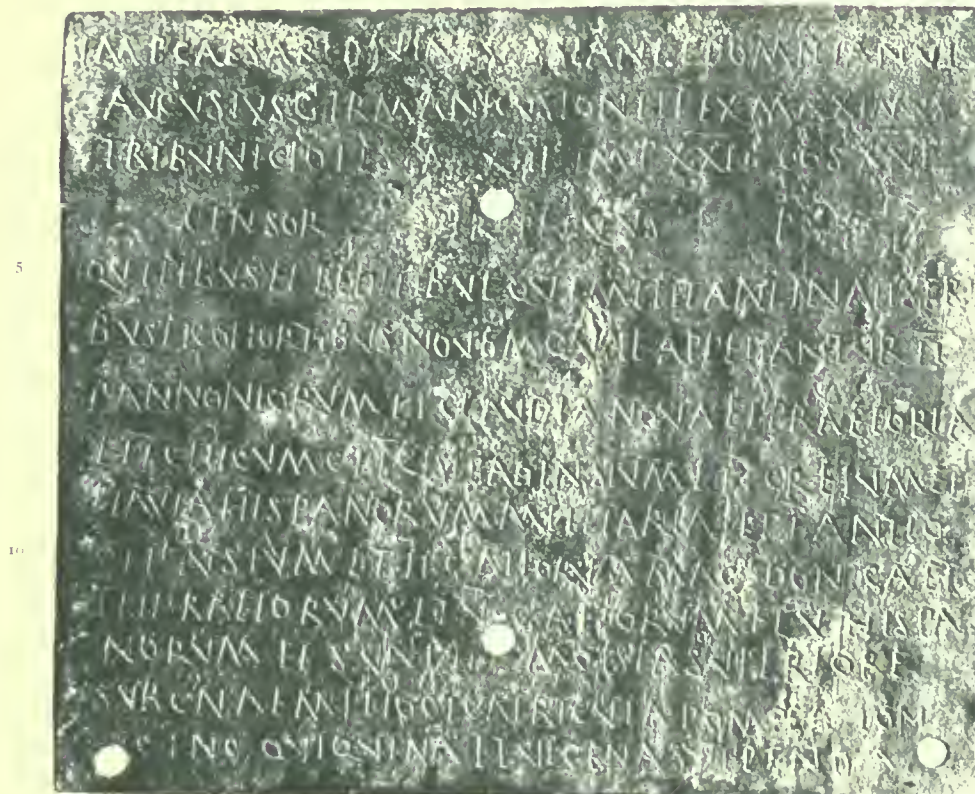 IMP CAESAR DIVI VESPASIANI F DOMITIANVS
AVGVSTVS GERMANICVS PONTIFEX MAXIMVS
TRIBVNIC POTESTAT XII IMP XXII COS XVI
CENSOR PERPETVVS P P
5 EQVITIBVS ET PEDITIBVS QVI MILITANT IN ALIS TRI
BVS ET COHORTIBVS NOVEM QVAE APPELLANTVR II
PANNONIORVM ET CLAVDIA NOVA ET PRAETORIA
ET I CILICVM ET I CISIPADENSIVM ET I CRETVM ET I
FLAVIA HISPANORVM MILLIARIA ET I ANTIO
10 CHIENSIVM ET II GALLORVM MACEDONICA ET
IIII RAETORVM ET V GALLORVM ET V HISPA
NORVM ET SVNT IN MOESIA SVPERIORE
SVB CN AEMILIO CICATRICVLA POMPEIO LON
GINO QVI QVINA ET VICENA STIPENDIA